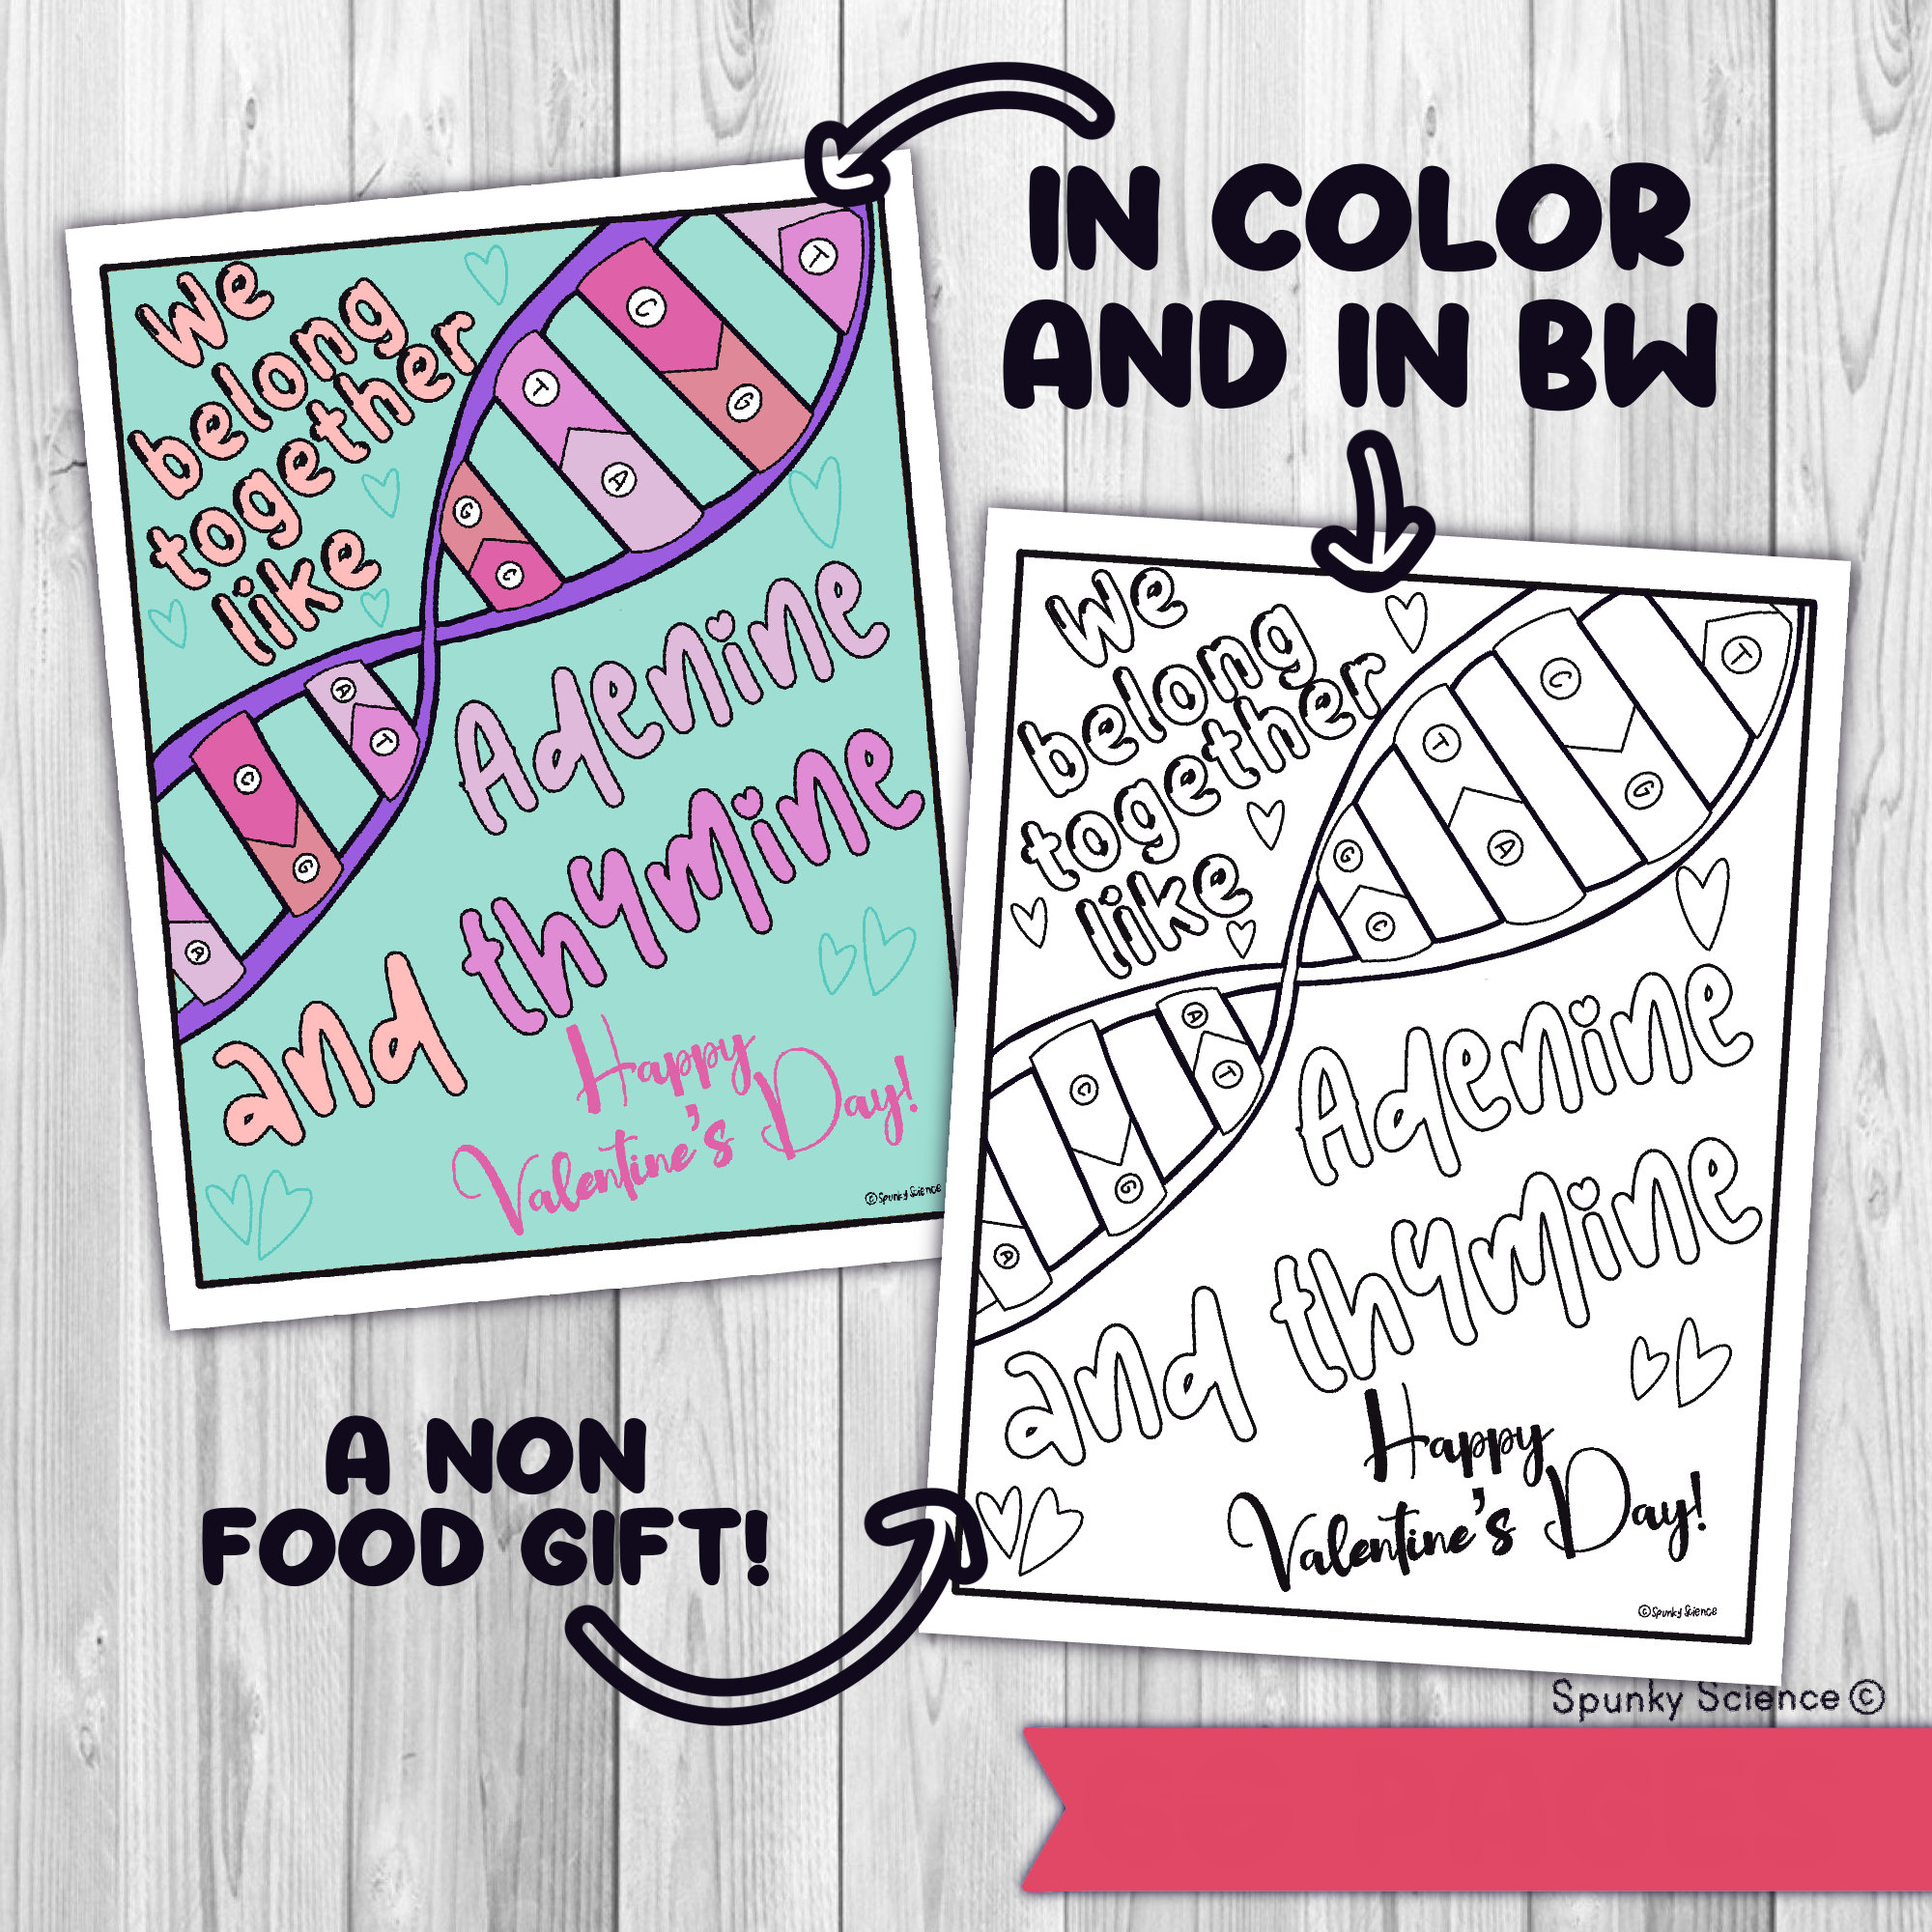 IN COLOR
AND IN BW
We
belong
together
like
T
C
G
T
A
G
G
A
T
C
G
A
Adenine
and thymine
Happy
Valentine's Day!
©Spunky Science
We
belong
together
like
T
C
G
T
A
G
C
A
T
C
G
A
Adenine
and thymine
Happy
Valentine's Day!
©Spunky Science
A NON
FOOD GIFT!
Spunky Science©